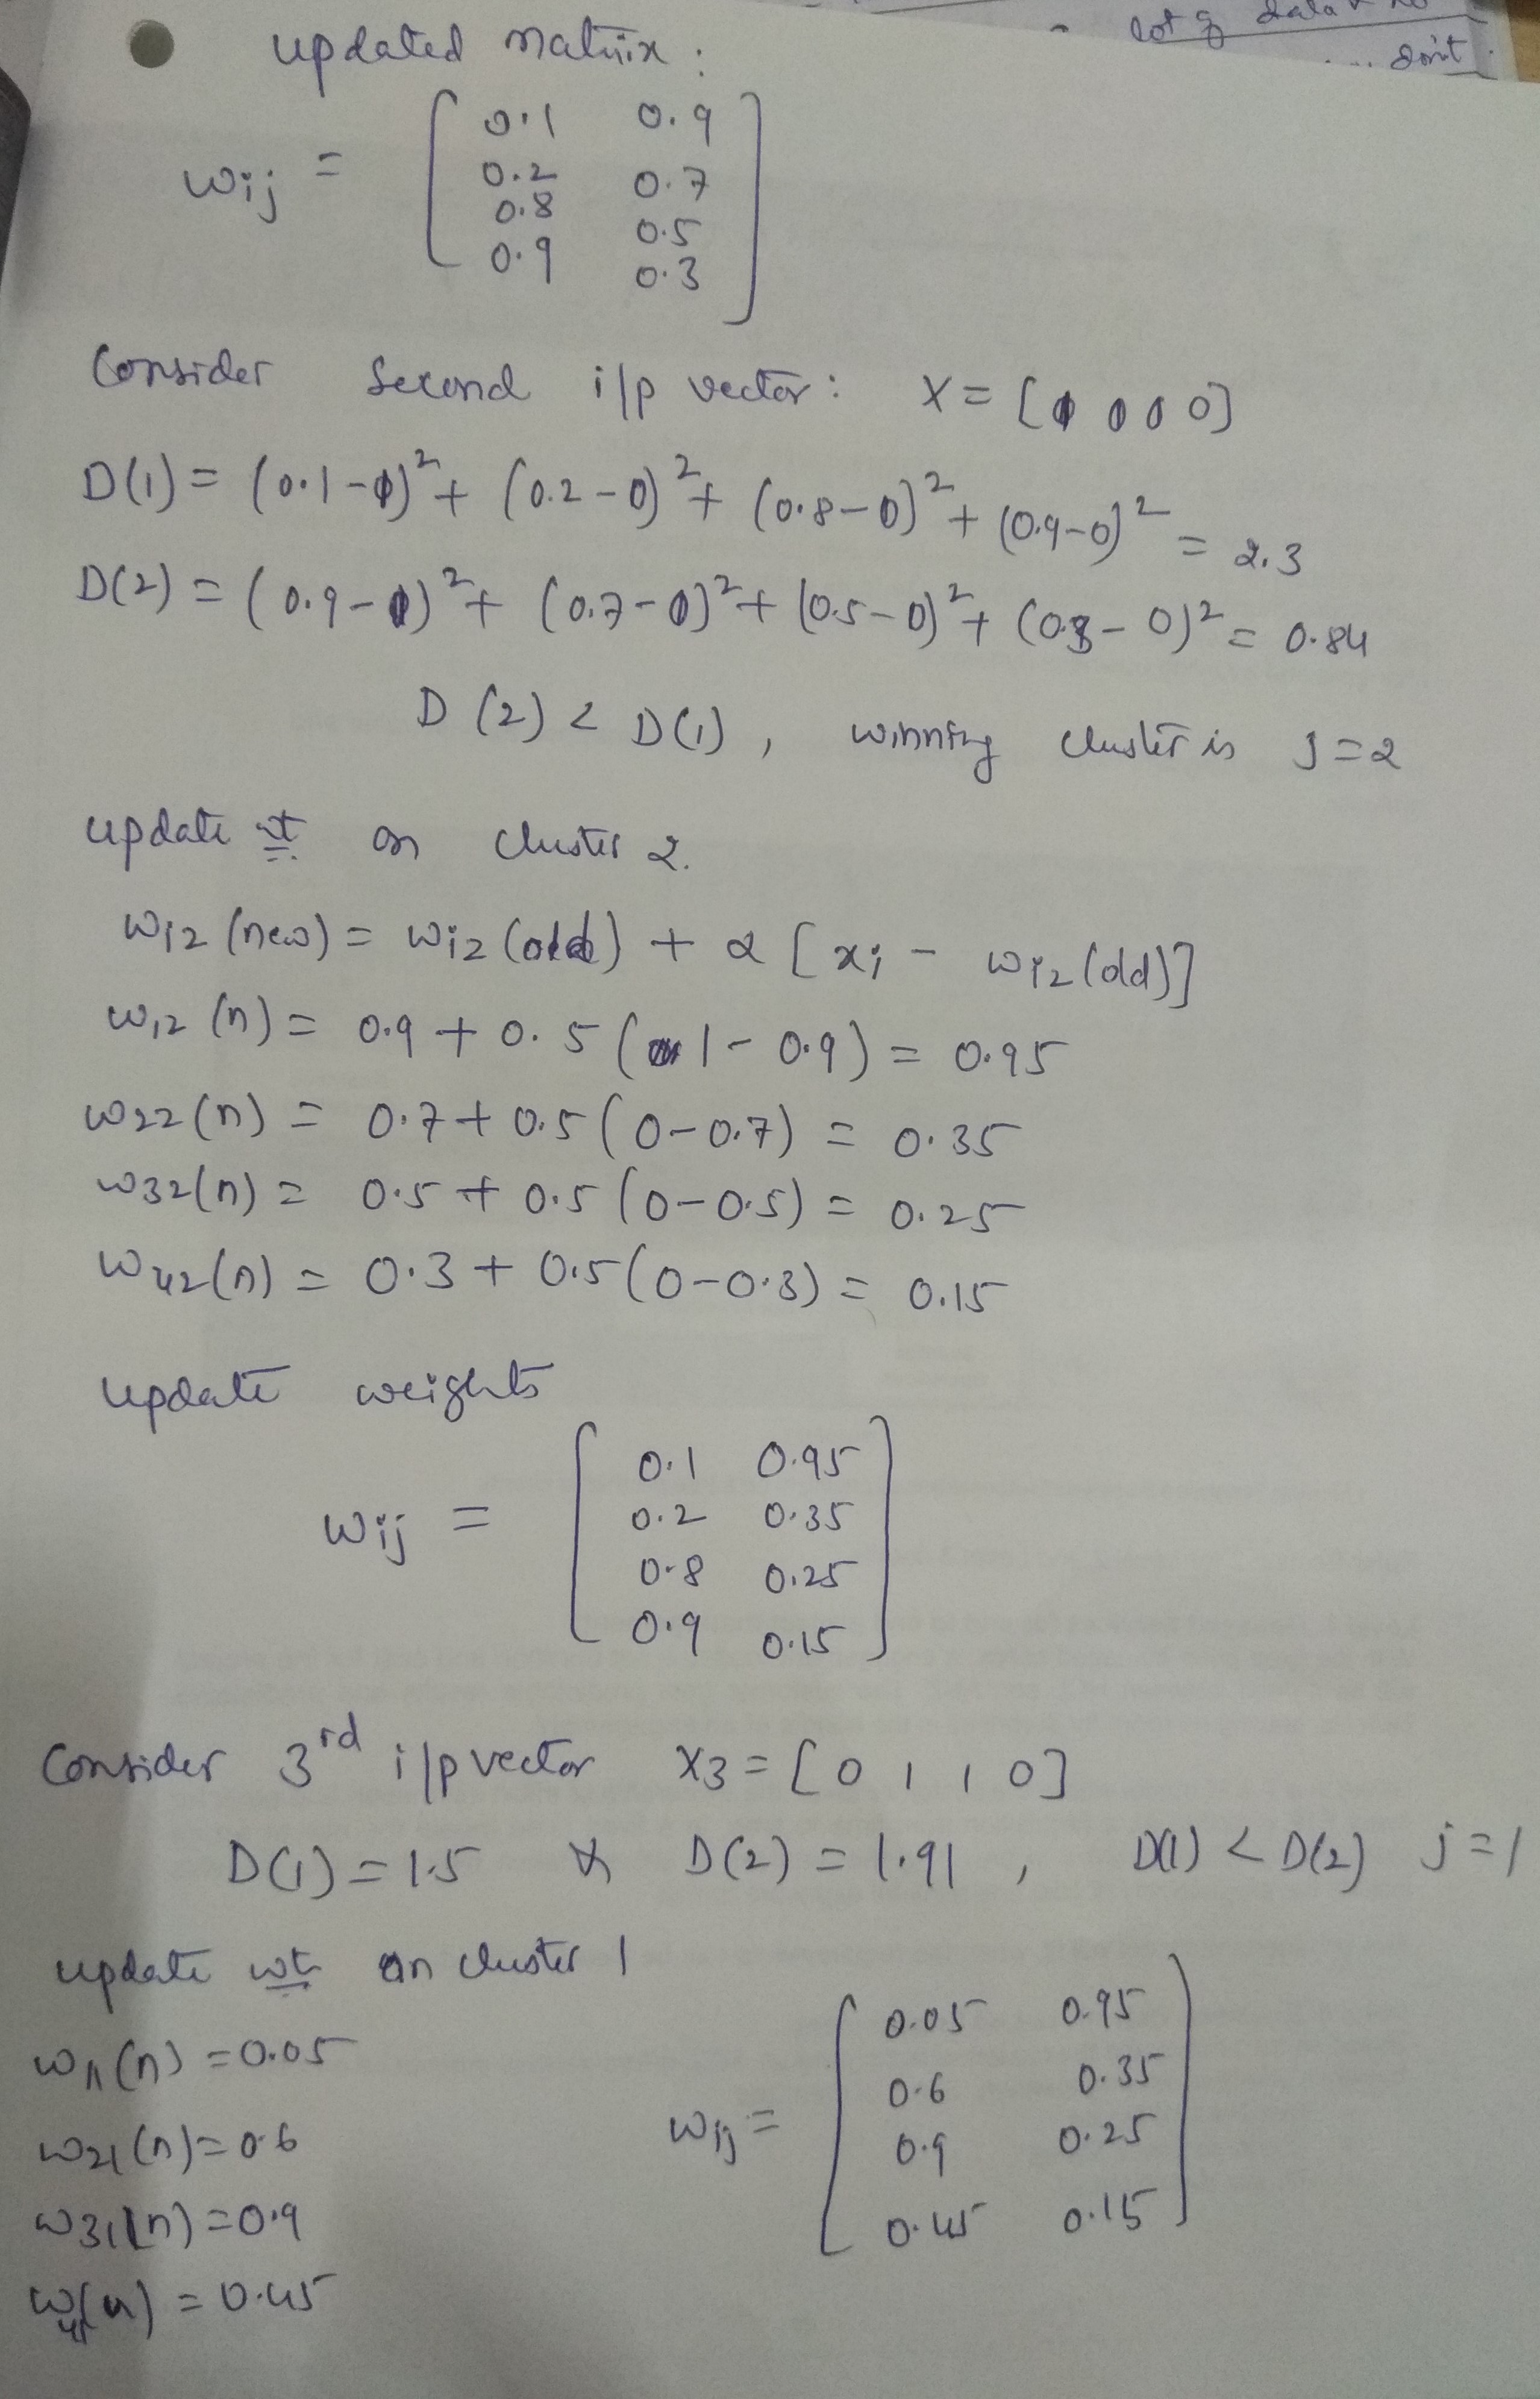 lot of data
don't
updated matrix :
wij = [ 0.1 0.9
0.2 0.7
0.8 0.5
0.9 0.3 ]
Consider second i/p vector : X = [1 0 0 0]
D(1) = (0.1-1)² + (0.2-0)² + (0.8-0)² + (0.9-0)² = 2.3
D(2) = (0.9-1)² + (0.7-0)² + (0.5-0)² + (0.3-0)² = 0.84
D(2) < D(1), winning cluster is J=2
update wt on cluster 2.
wi2 (new) = wi2 (old) + α [xi - wi2 (old)]
w12 (n) = 0.9 + 0.5 (1 - 0.9) = 0.95
w22 (n) = 0.7 + 0.5 (0-0.7) = 0.35
w32 (n) = 0.5 + 0.5 (0-0.5) = 0.25
w42 (n) = 0.3 + 0.5 (0-0.3) = 0.15
update weights
wij = [ 0.1 0.95
0.2 0.35
0.8 0.25
0.9 0.15 ]
Consider 3rd i/p vector X3 = [0 1 1 0]
D(1) = 1.5 & D(2) = 1.91, D(1) < D(2) j=1
update wt on cluster 1
w11 (n) = 0.05
w21 (n) = 0.6
w31 (n) = 0.9
w41 (n) = 0.45
wij = [ 0.05 0.95
0.6 0.35
0.9 0.25
0.45 0.15 ]